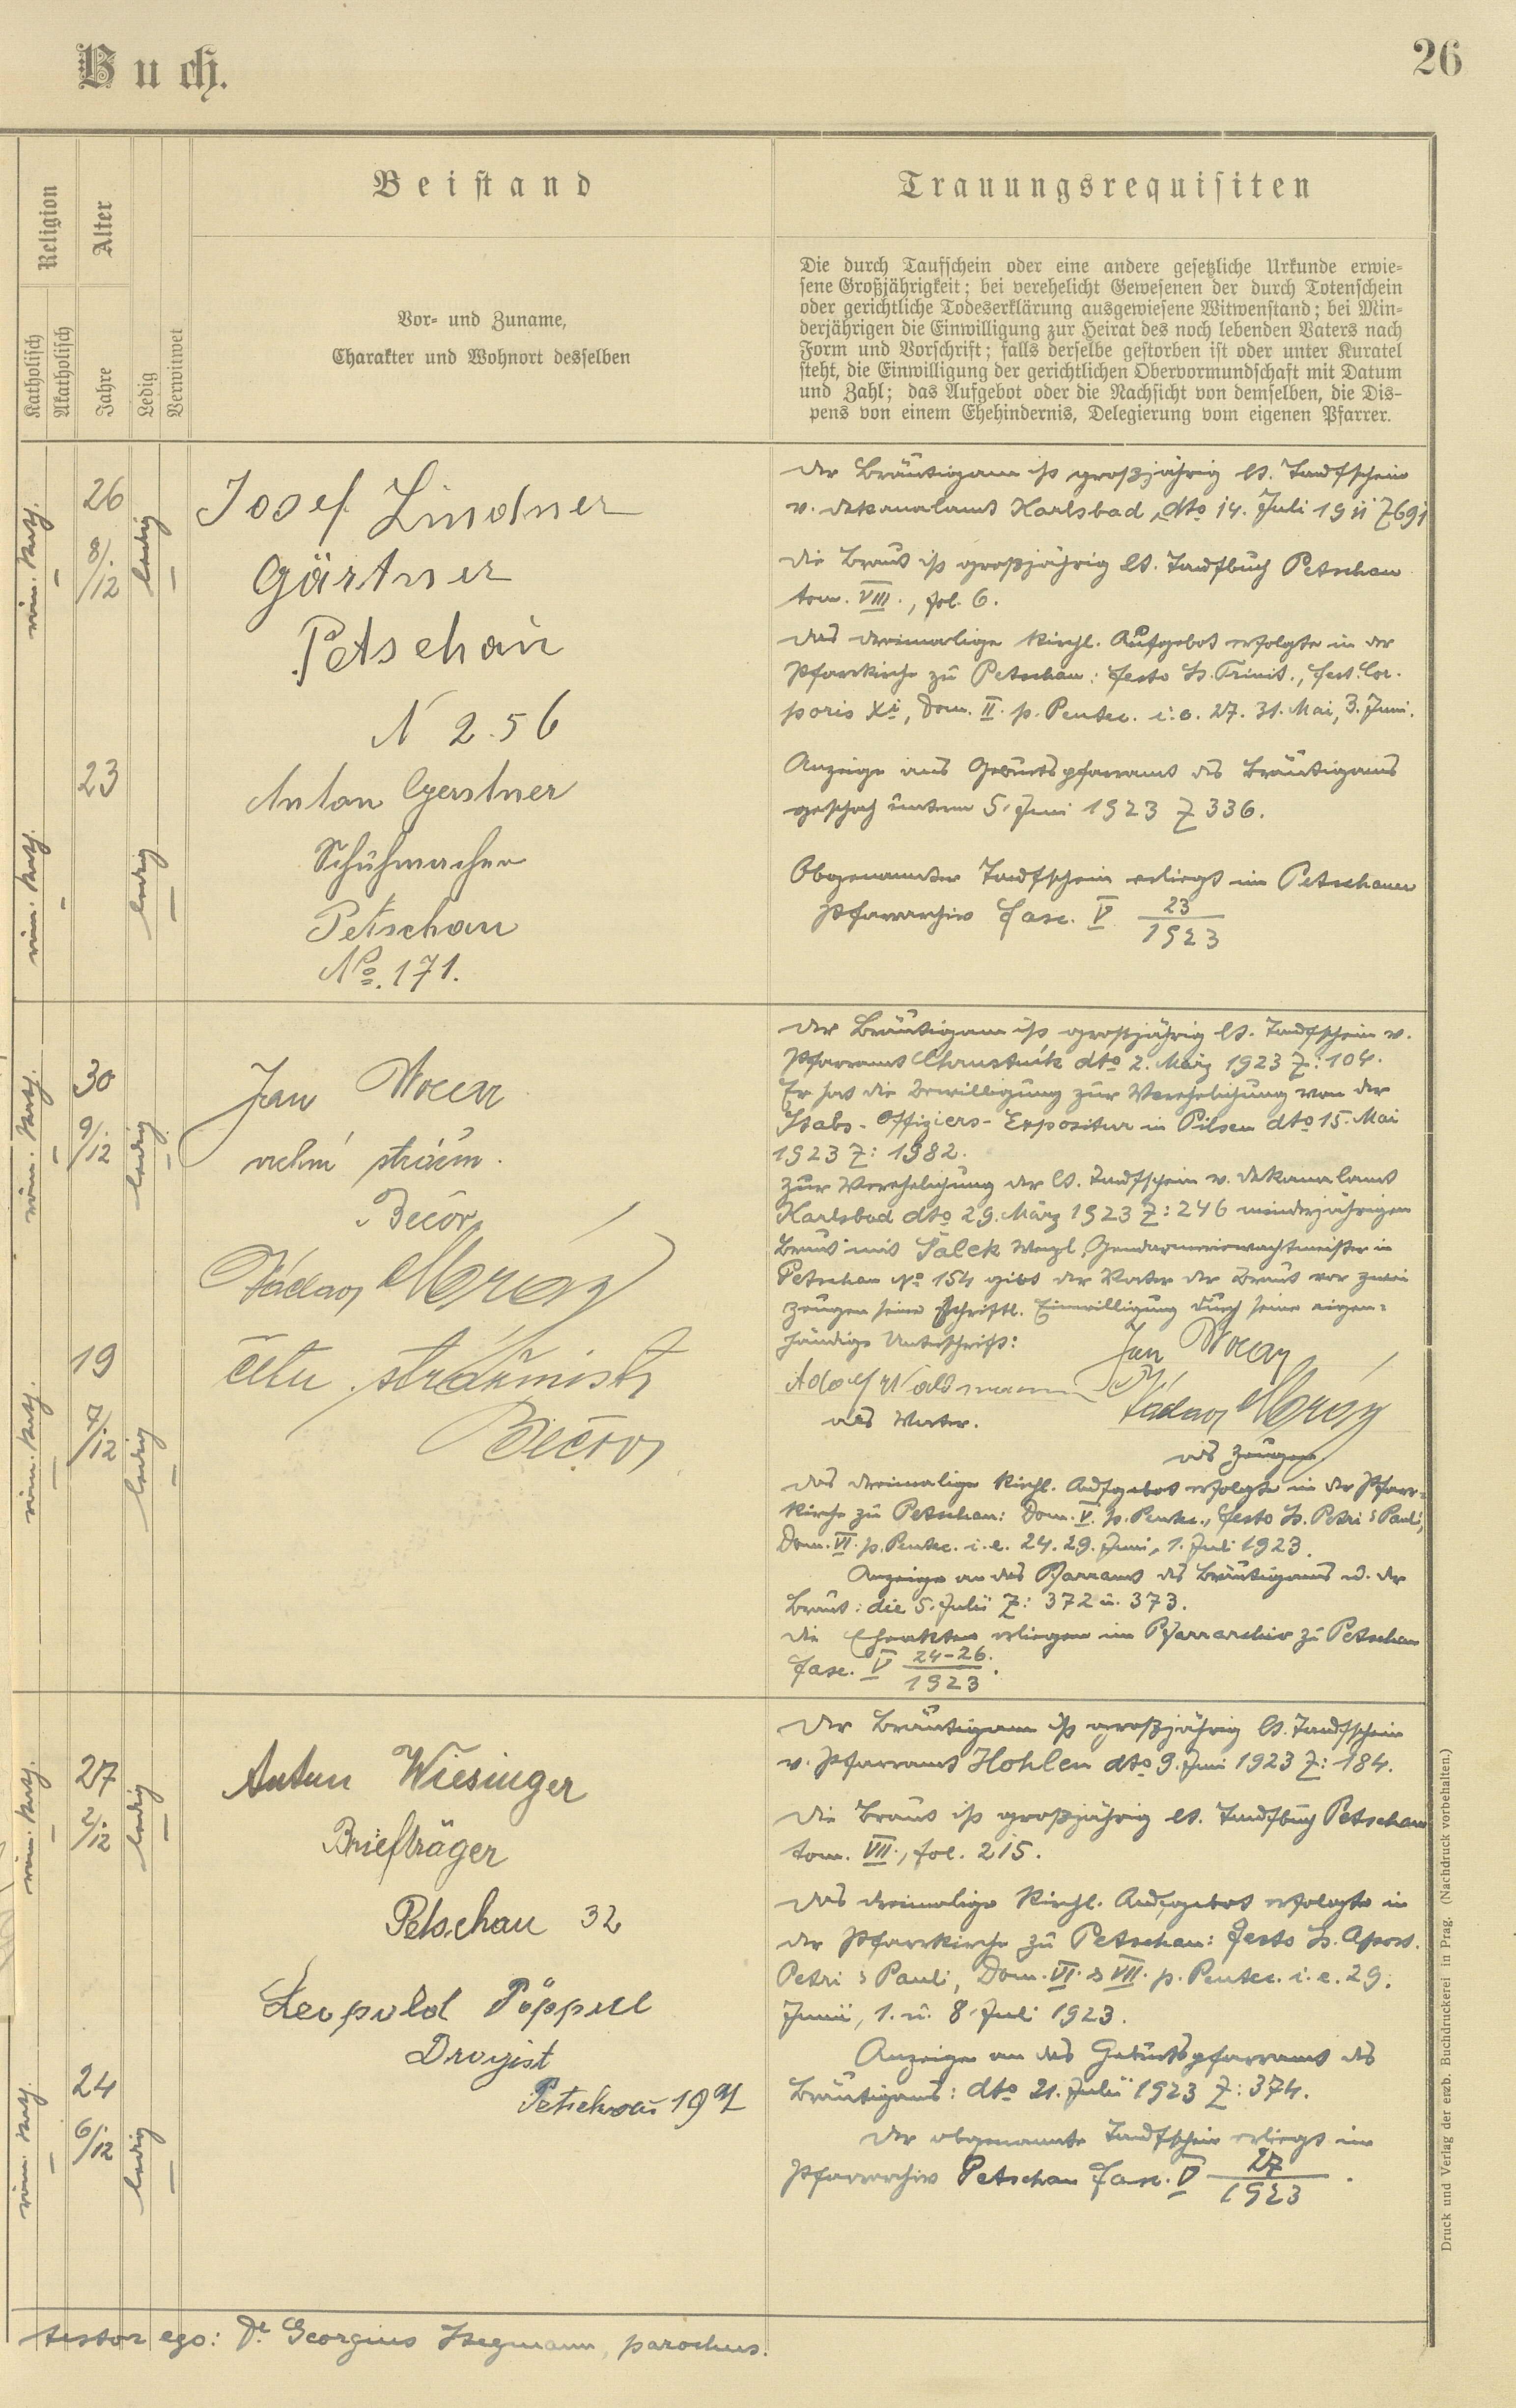 Buch.
26
Religion
Katholisch
Akatholisch
Alter
Jahre
Ledig
Verwitwet
Beistand
Vor- und Zuname,
Charakter und Wohnort desselben
Trauungsrequisiten
Die durch Taufschein oder eine andere gesetzliche Urkunde erwie-
sene Großjährigkeit; bei verehelicht Gewesenen der durch Totenschein
oder gerichtliche Todeserklärung ausgewiesene Witwenstand; bei Min-
derjährigen die Einwilligung zur Heirat des noch lebenden Vaters nach
Form und Vorschrift; falls derselbe gestorben ist oder unter Kuratel
steht, die Einwilligung der gerichtlichen Obervormundschaft mit Datum
und Zahl; das Aufgebot oder die Nachsicht von demselben, die Dis-
pens von einem Ehehindernis, Delegierung vom eigenen Pfarrer.
röm. kath.
26
8/12
ledig
röm. kath.
23
ledig
Josef Lindner
Gärtner
Petschau
N 256
Anton Gerstner
Schuhmacher
Petschau
No. 171.
Der Bräutigam ist großjährig lt. Taufschein
v. Dekanalamt Karlsbad dto 14. Juli 1911 Z 691
Die Braut ist großjährig lt. Taufbuch Petschau
tom. VIII., fol. 6.
Das dreimalige kirchl. Aufgebot erfolgte in der
Pfarrkirche zu Petschau: festo Ss. Trinit., fest. Cor-
poris Xi, Dom. II. p. Pentec. i. e. 27. 31. Mai, 3. Juni.
Anzeige ans Geburtspfarramt des Bräutigams
geschah unterm 5. Juni 1923 Z 336.
Obgenannter Taufschein erliegt im Petschauer
Pfarrarchiv fasc. V 23/1923
röm. kath.
30
9/12
ledig
röm. kath.
19
7/12
ledig
Jan
strážm.
Bečov
Václav Mráz
četn. strážmistr
Bečov
Der Bräutigam ist großjährig lt. Taufschein v.
Pfarramt Choustník dto 2. März 1923 Z: 104.
Er hat die Bewilligung zur Verehelichung von der
Stabs-Offiziers-Expositur in Pilsen dto 15. Mai
1923 Z: 1982.
Zur Verehelichung der lt. Taufschein v. Dekanalamt
Karlsbad dto 29. März 1923 Z: 246 minderjährigen
Braut mit Pálek Wenzl, Gendarmeriewachtmeister in
Petschau No 154 gibt der Vater der Braut vor zwei
Zeugen seine schriftl. Einwilligung durch seine eigen-
händige Unterschrift:
Adolf Waldmann
als Vater.
Jan
Václav Mráz
als Zeugen
Das dreimalige kirchl. Aufgebot erfolgte in der Pfarr-
kirche zu Petschau: Dom. V. p. Pentec., festo Ss. Petri & Pauli,
Dom. VI. p. Pentec. i. e. 24. 29. Juni, 1. Juli 1923.
Anzeige an das Pfarramt des Bräutigams u. der
Braut: die 5. Julii Z: 372 u. 373.
Die Eheakten erliegen im Pfarrarchiv zu Petschau
fasc. V 24-26./1923.
röm. kath.
27
2/12
ledig
röm. kath.
24
6/12
ledig
Anton Wiesinger
Briefträger
Petschau 32
Leopold Pöpperl
Drogist
Petschau
Der Bräutigam ist großjährig lt. Taufschein
v. Pfarramt Hohlen dto 9. Juni 1923 Z: 184.
Die Braut ist großjährig lt. Taufbuch Petschau
tom. VII., fol. 215.
Das dreimalige kirchl. Aufgebot erfolgte in
der Pfarrkirche zu Petschau: festo Ss. Apost.
Petri & Pauli, Dom. VI. & VII. p. Pentec. i. e. 29.
Junii, 1. u. 8. Juli 1923.
Anzeige an das Geburtspfarramt des
Bräutigams: dto 21. Julii 1923 Z: 374.
Der obgenannte Taufschein erliegt im
Pfarrarchiv Petschau fasc. V 27/1923.
testor ego: Dr. Georgius parochus.
Druck und Verlag der erzb. Buchdruckerei in Prag. (Nachdruck vorbehalten.)